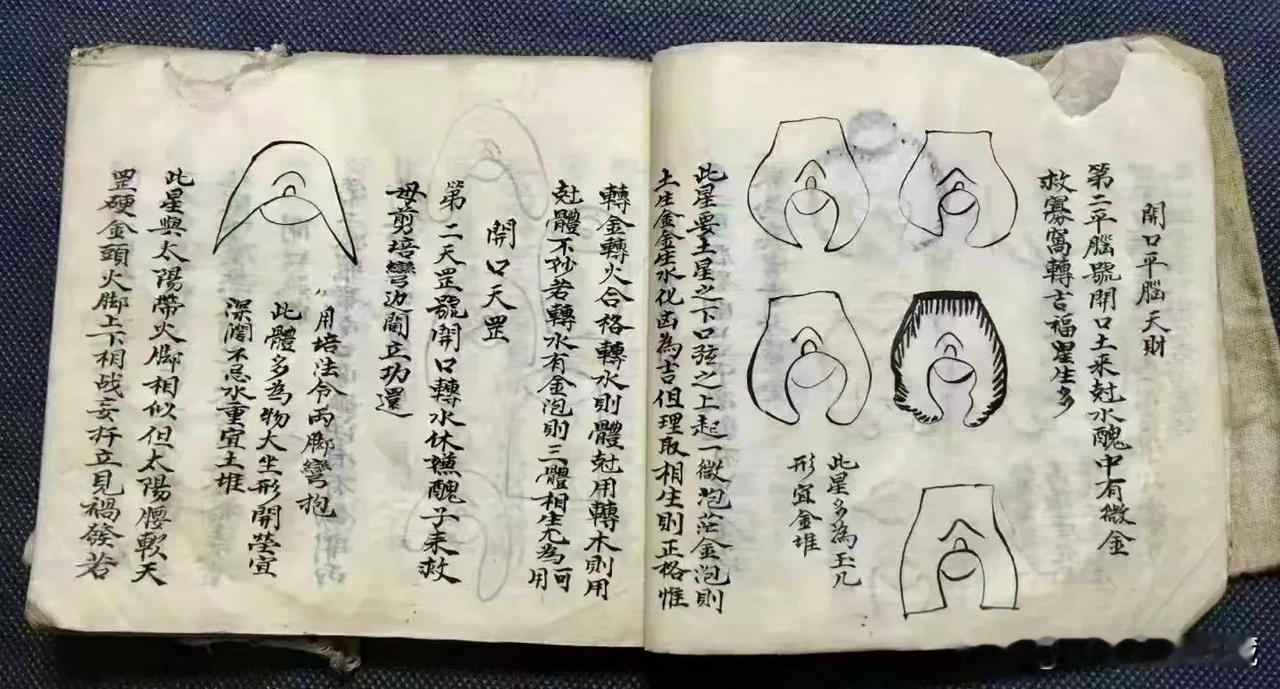 開口平腦天財
第二平腦號開口土来尅水醜中有微金
救寡窩轉吉福星生多
此星多為玉几
形宜金堆
此星要土星之下口弦之上起一微泡茫金泡則
土生金金生水化凶為吉但理取相生則正格惟
轉金轉火合格轉水則體尅用轉木則用
尅體不妙若轉水有金泡則三體相生尤為可
用
開口天罡
第二天罡號開口轉水休嫌醜子来救
母剪培彎边闊立功還
用培法令両脚彎抱
此體多為物大坐形開塋宜
深濶不忌水重宜土堆
此星與太陽帶火脚相似但太陽腰軟天
罡硬金頭火脚上下相战妄扦立見禍發若